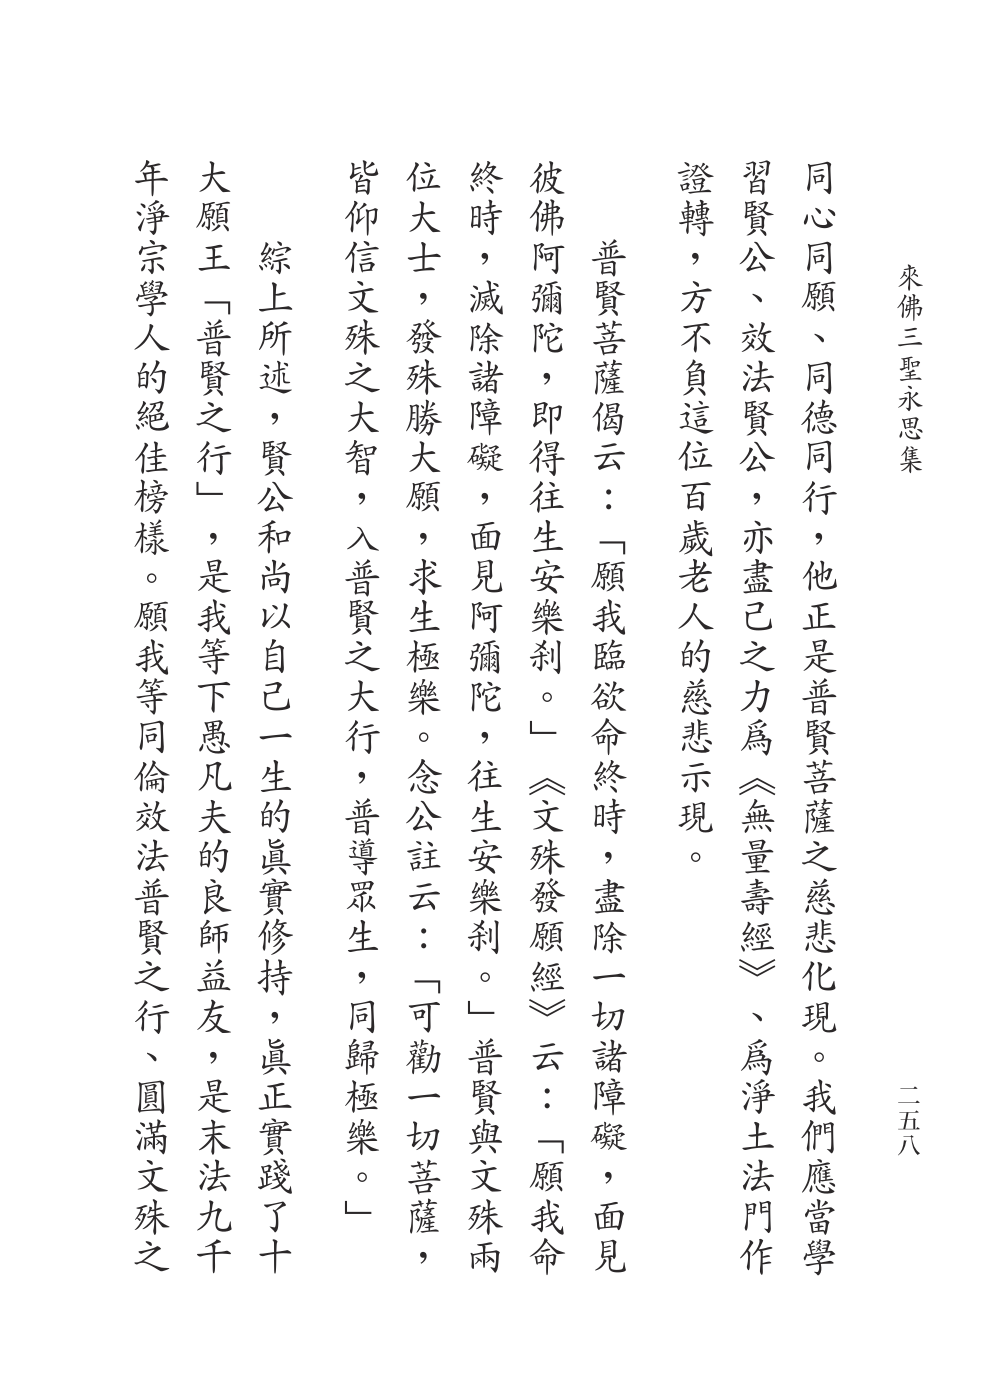 來佛三聖永思集
二五八
同心同願、同德同行，他正是普賢菩薩之慈悲化現。我們應當學
習賢公、效法賢公，亦盡己之力爲《無量壽經》、爲淨土法門作
證轉，方不負這位百歲老人的慈悲示現。
普賢菩薩偈云：「願我臨欲命終時，盡除一切諸障礙，面見
彼佛阿彌陀，即得往生安樂刹。」《文殊發願經》云：「願我命
終時，滅除諸障礙，面見阿彌陀，往生安樂刹。」普賢與文殊兩
位大士，發殊勝大願，求生極樂。念公註云：「可勸一切菩薩，
皆仰信文殊之大智，入普賢之大行，普導眾生，同歸極樂。」
綜上所述，賢公和尚以自己一生的眞實修持，眞正實踐了十
大願王「普賢之行」，是我等下愚凡夫的良師益友，是末法九千
年淨宗學人的絕佳榜樣。願我等同倫效法普賢之行、圓滿文殊之